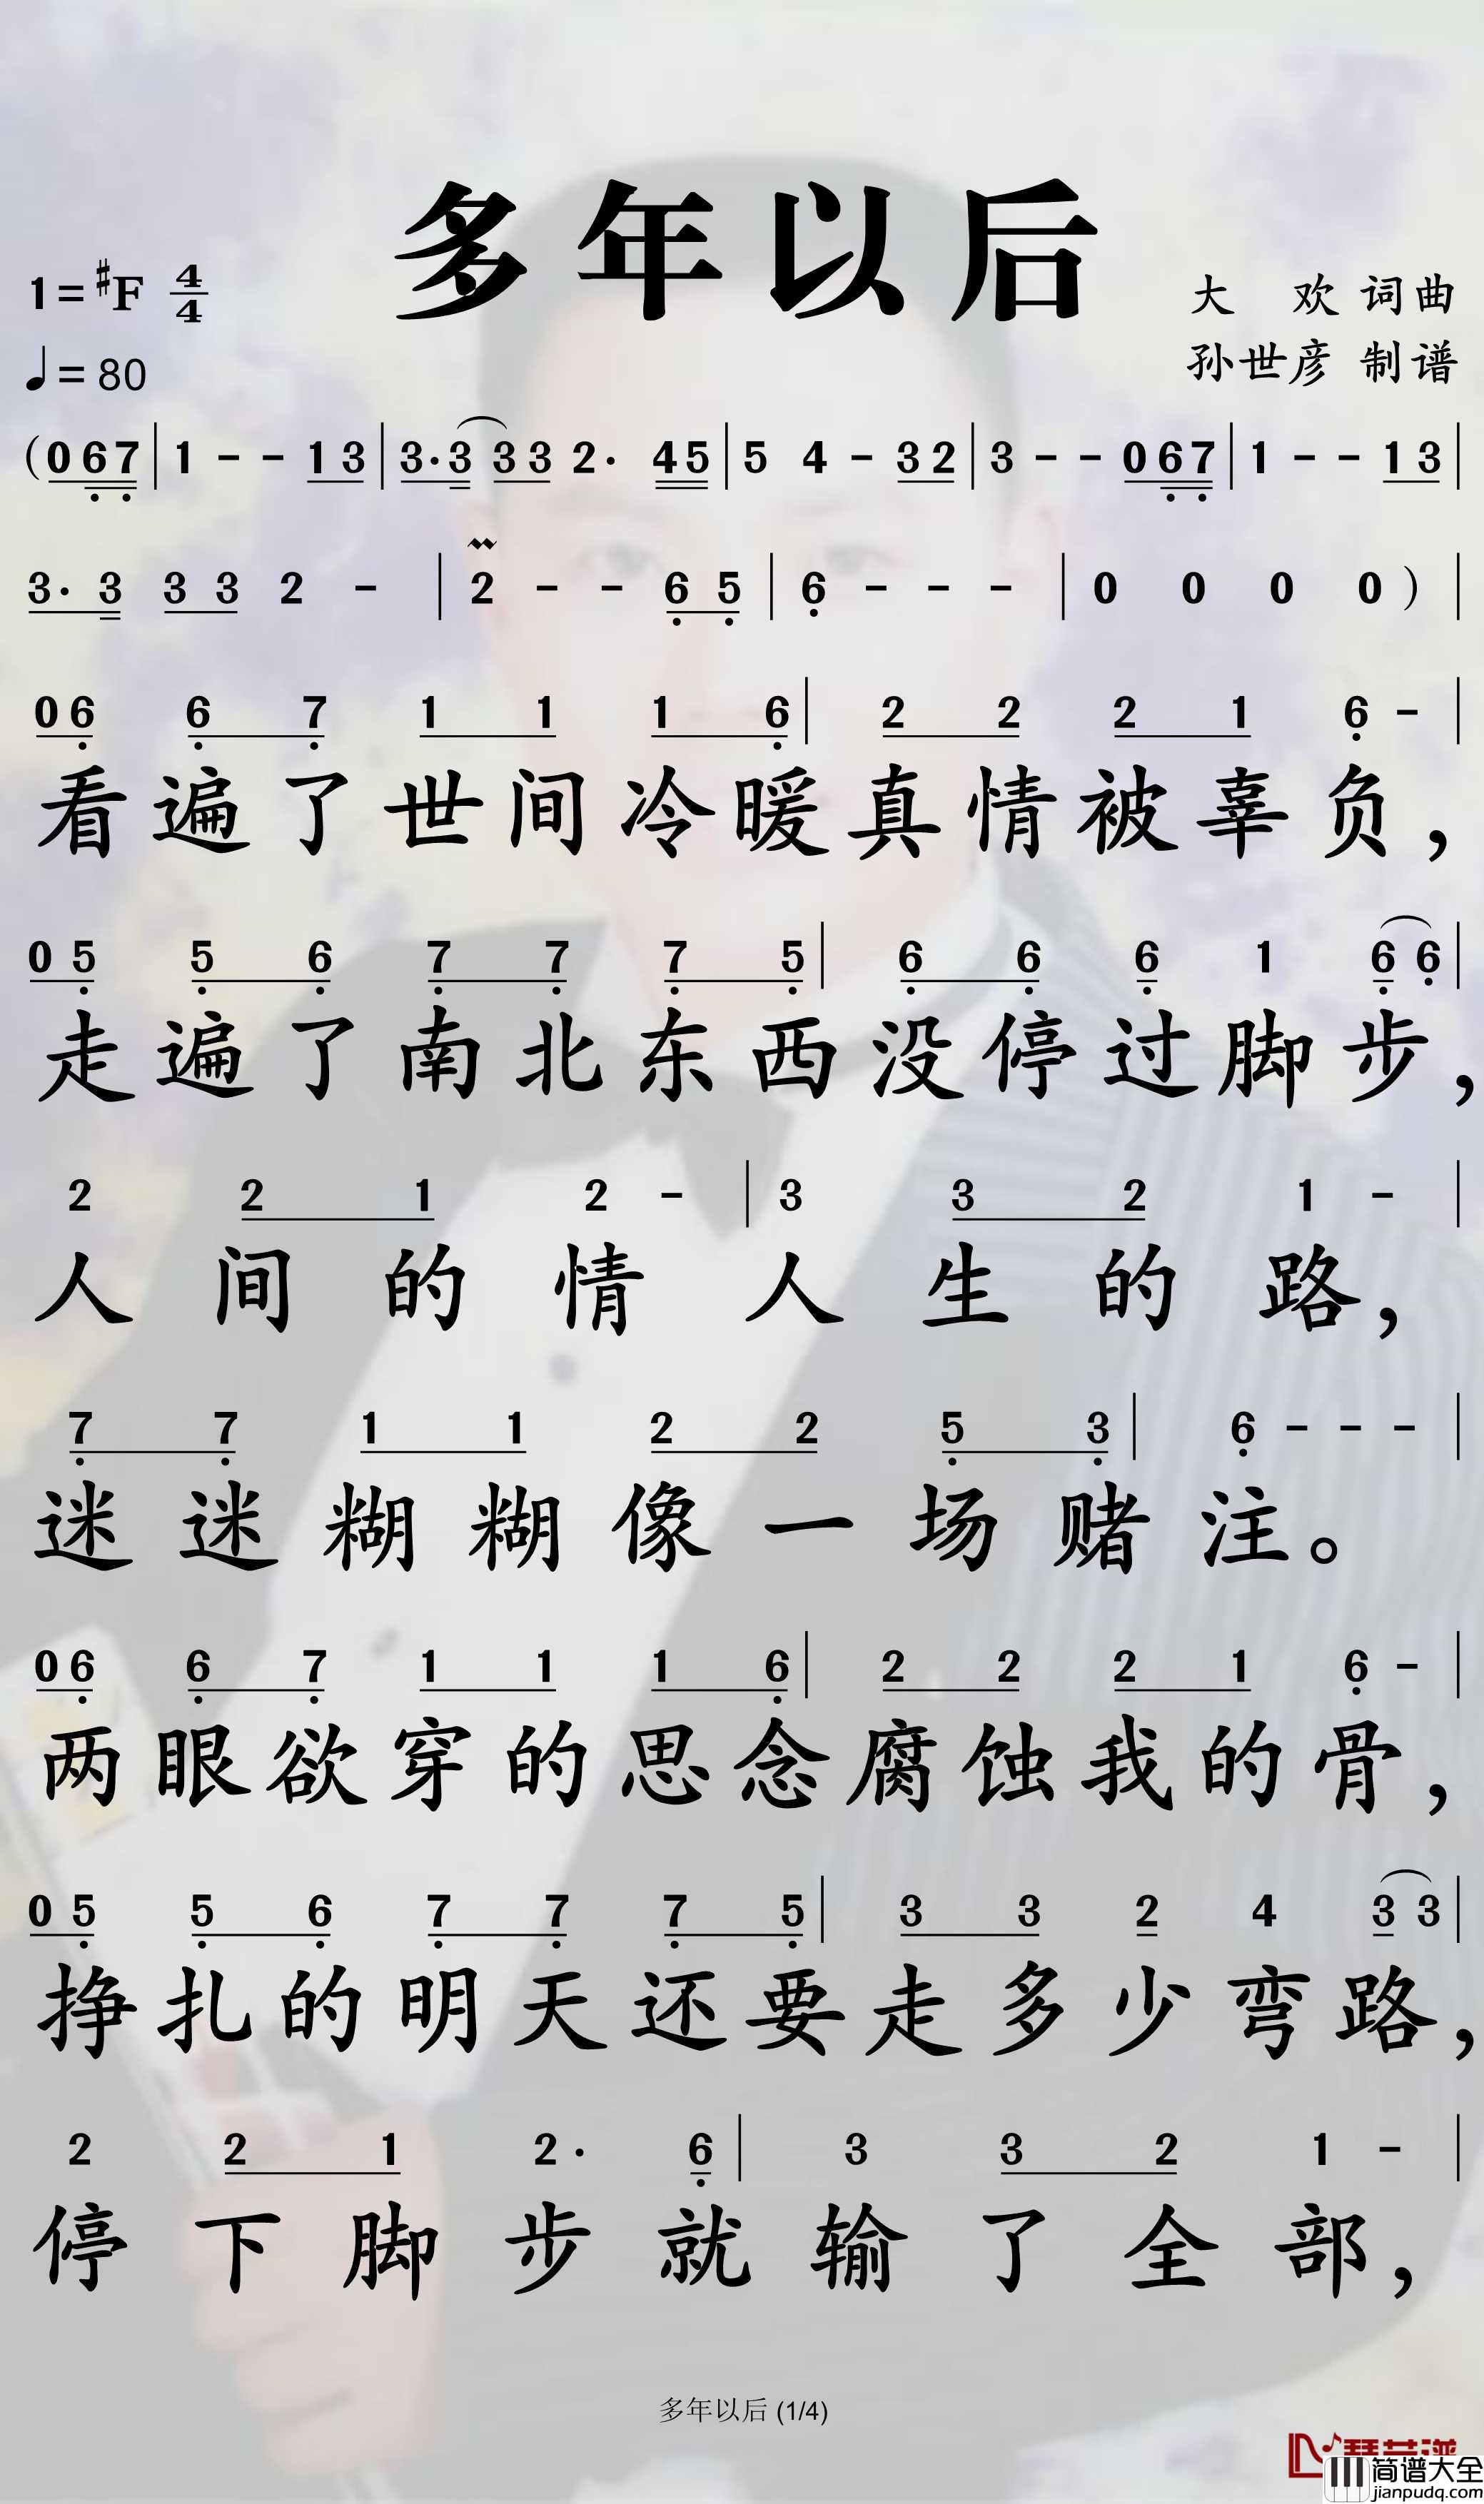 多年以后
1=♯F 4/4
大 欢 词曲
孙世彦 制谱
♩=80
(0 6 7 | 1 - - 1 3 | 3· 3 3 3 2· 4 5 | 5 4 - 3 2 | 3 - - 0 6 7 | 1 - - 1 3 |
3· 3 3 3 2 - | 2 - - 6 5 | 6 - - - | 0 0 0 0 ) |
0 6 6 7 1 1 1 6 | 2 2 2 1 6 - |
看遍了世间冷暖真情被辜负，
0 5 5 6 7 7 7 5 | 6 6 6 1 6 6 |
走遍了南北东西没停过脚步，
2 2 1 2 - | 3 3 2 1 - |
人间的情人生的路，
7 7 1 1 2 2 5 3 | 6 - - - |
迷迷糊糊像一场赌注。
0 6 6 7 1 1 1 6 | 2 2 2 1 6 - |
两眼欲穿的思念腐蚀我的骨，
0 5 5 6 7 7 7 5 | 3 3 2 4 3 3 |
挣扎的明天还要走多少弯路，
2 2 1 2· 6 | 3 3 2 1 - |
停下脚步就输了全部，
多年以后 (1/4)
简谱大全
jianpudq.com